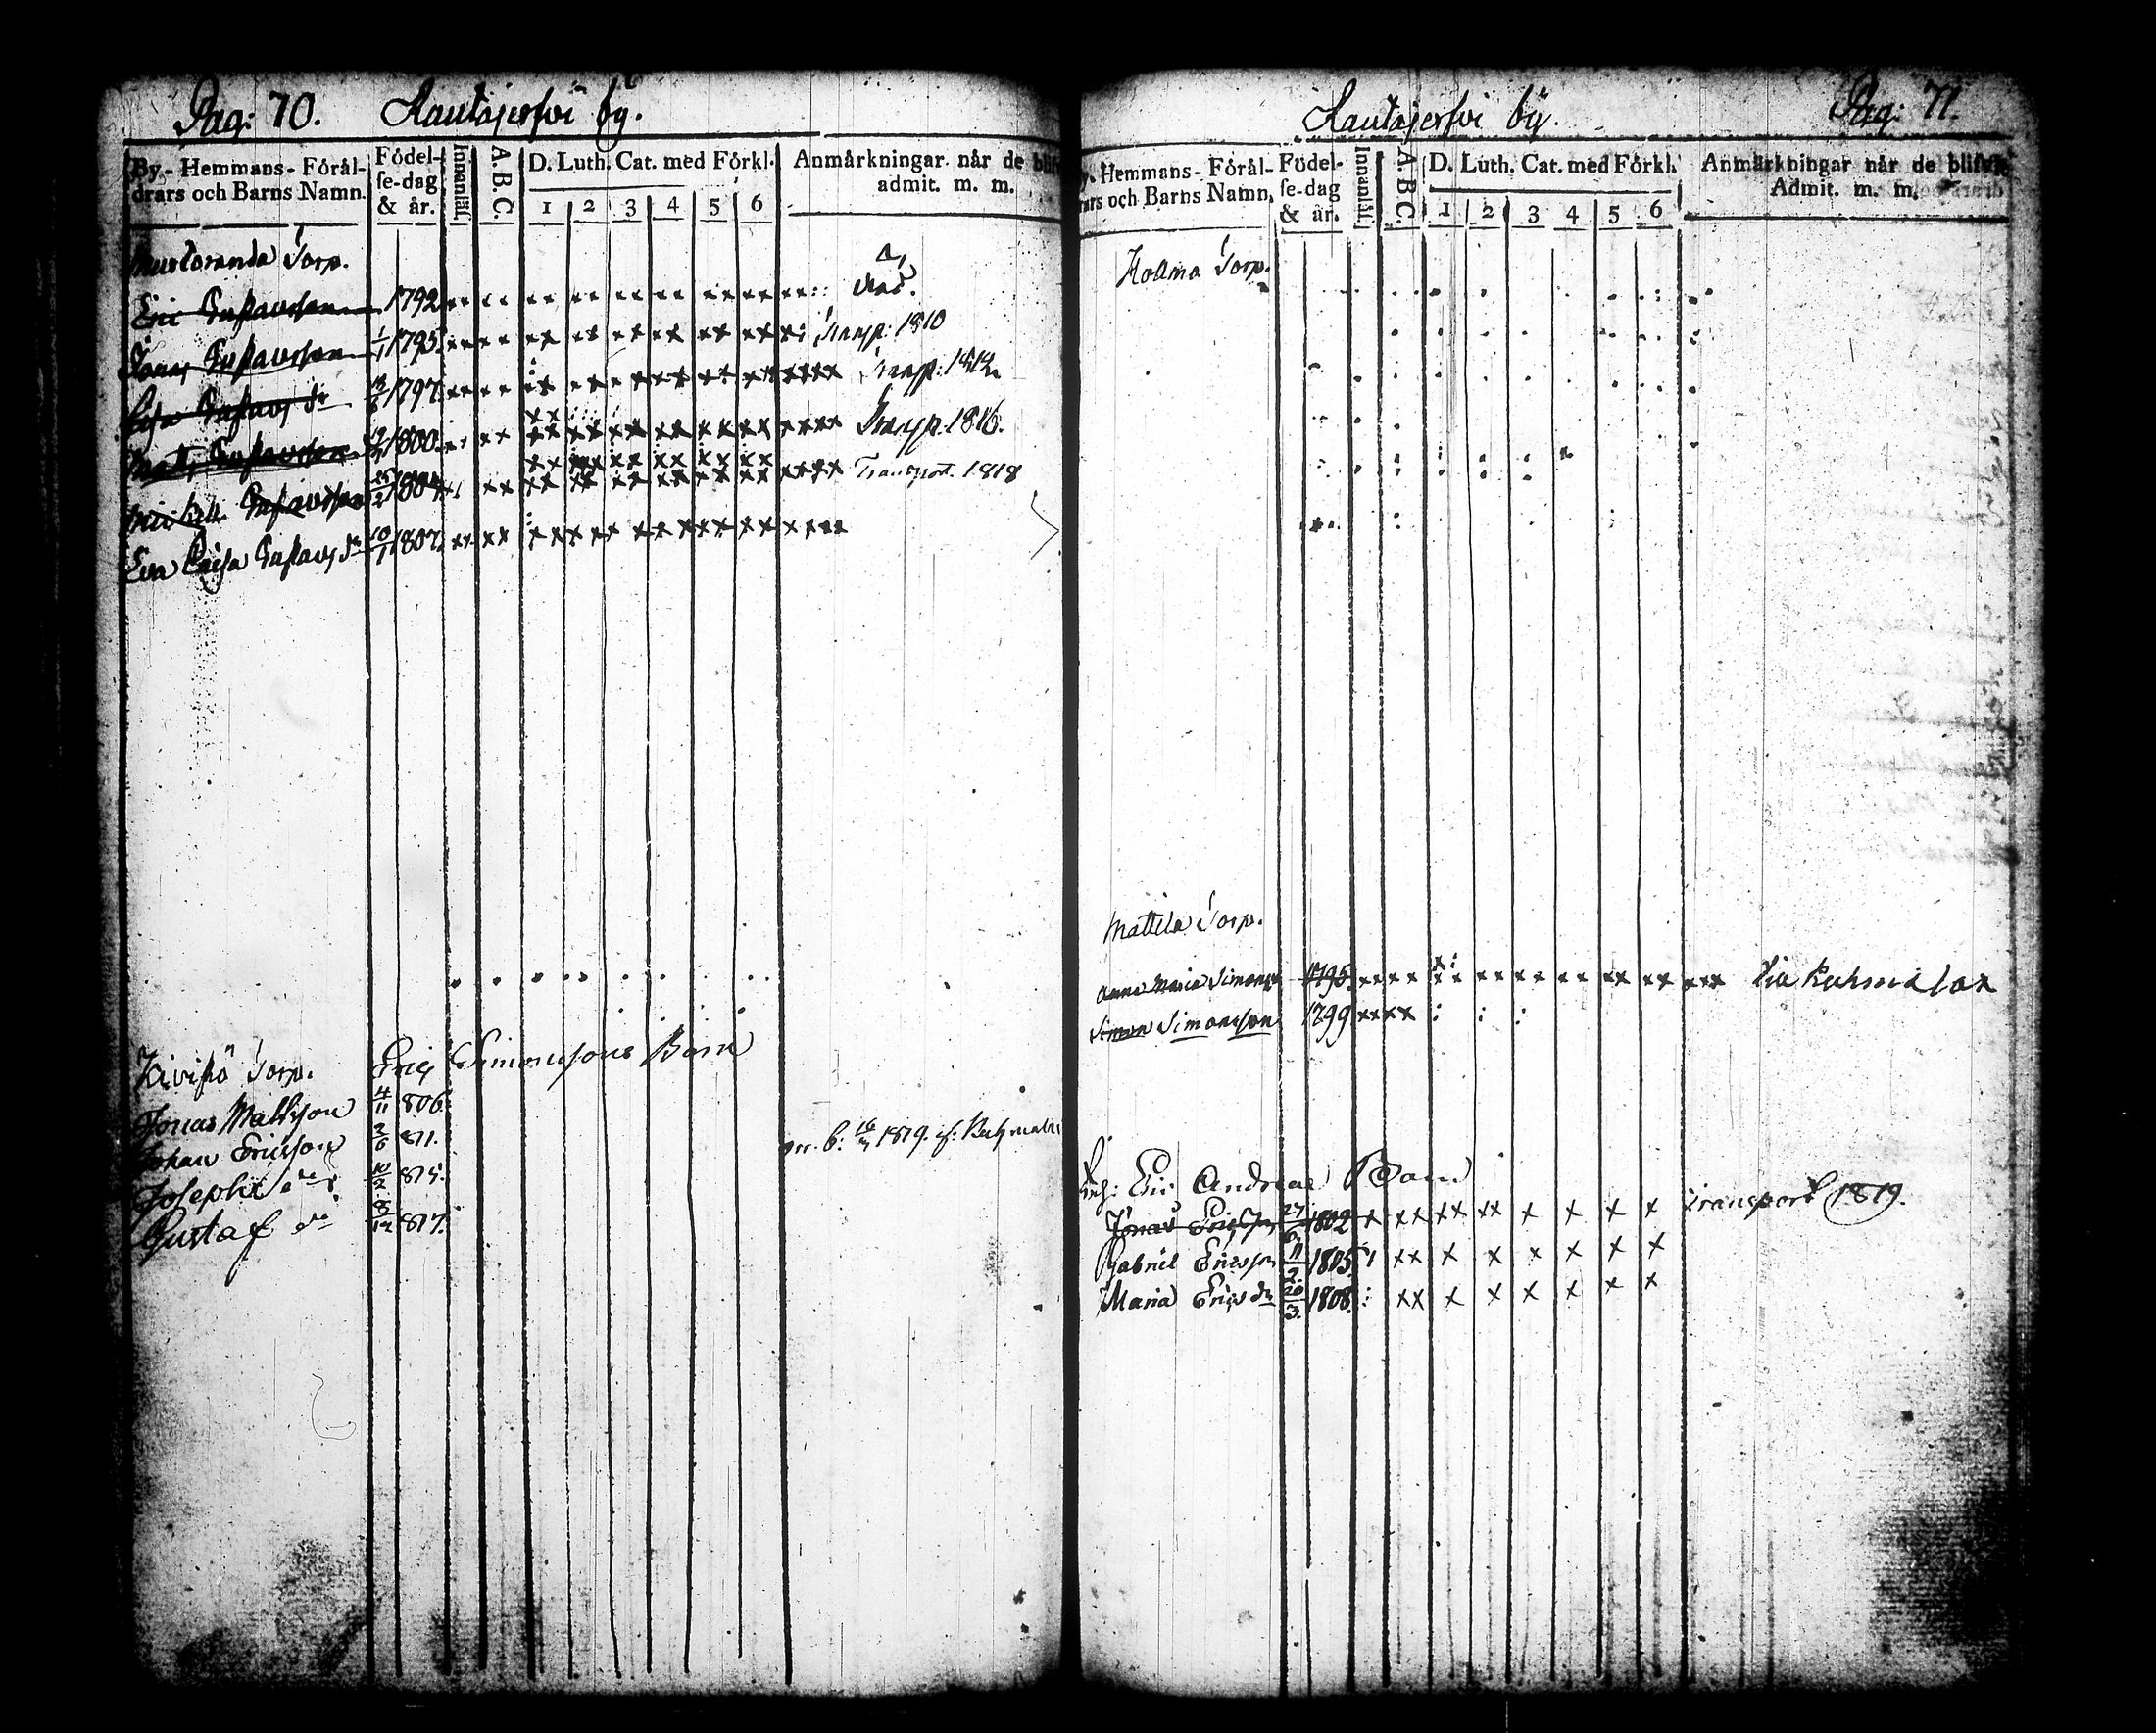 Pag: 70. Kautojerfvi by.
By- Hemmans- Fórål-
drars och Barns Namn.
Födel-
se-dag
& år.
Innanläs.
A. B. C.
D. Luth. Cat. med Förkl.
1 2 3 4 5 6
Anmårkningar når de blif
admit. m. m.
Torp.
Eric Gustavsson 1792
Jonas Gustavsson 1/1 1795. Transp: 1810
Lisa Gustavs dr 1797 Transp: 1812
Matts Gustavsson 1800. Transp. 1816.
Michel Gustavsson 1804 Transport. 1818
Eva Caisa Gustavs dr 10/1 1807.
Torp. Eric Simonssons Barn
Jonas Mattsson 4/11 806.
Johan Ericsson 3/6 811.
Joseph dr 10/2 815.
Gustaf dr 817.
Kautojerfvi by. Pag: 71.
Hemmans- Fórål-
och Barns Namn.
Födel-
se-dag
& år.
Innanläs.
A. B. C.
D. Luth. Cat. med Förkl.
1 2 3 4 5 6
Anmårkningar når de blifvit
Admit. m. m.
Torp.
Mattila Torp.
Anna Maria Simons 1795.
Simon Simonsson 1799
Eric Andreae Barn
Jonas Ericsson 27/6 1802 Transport 1819.
Gabriel Ericsson 11/2 1805
Maria Erics dr 20/3. 1808.